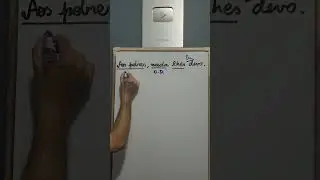 Aos pobres, nada lhes devo.
O.D.